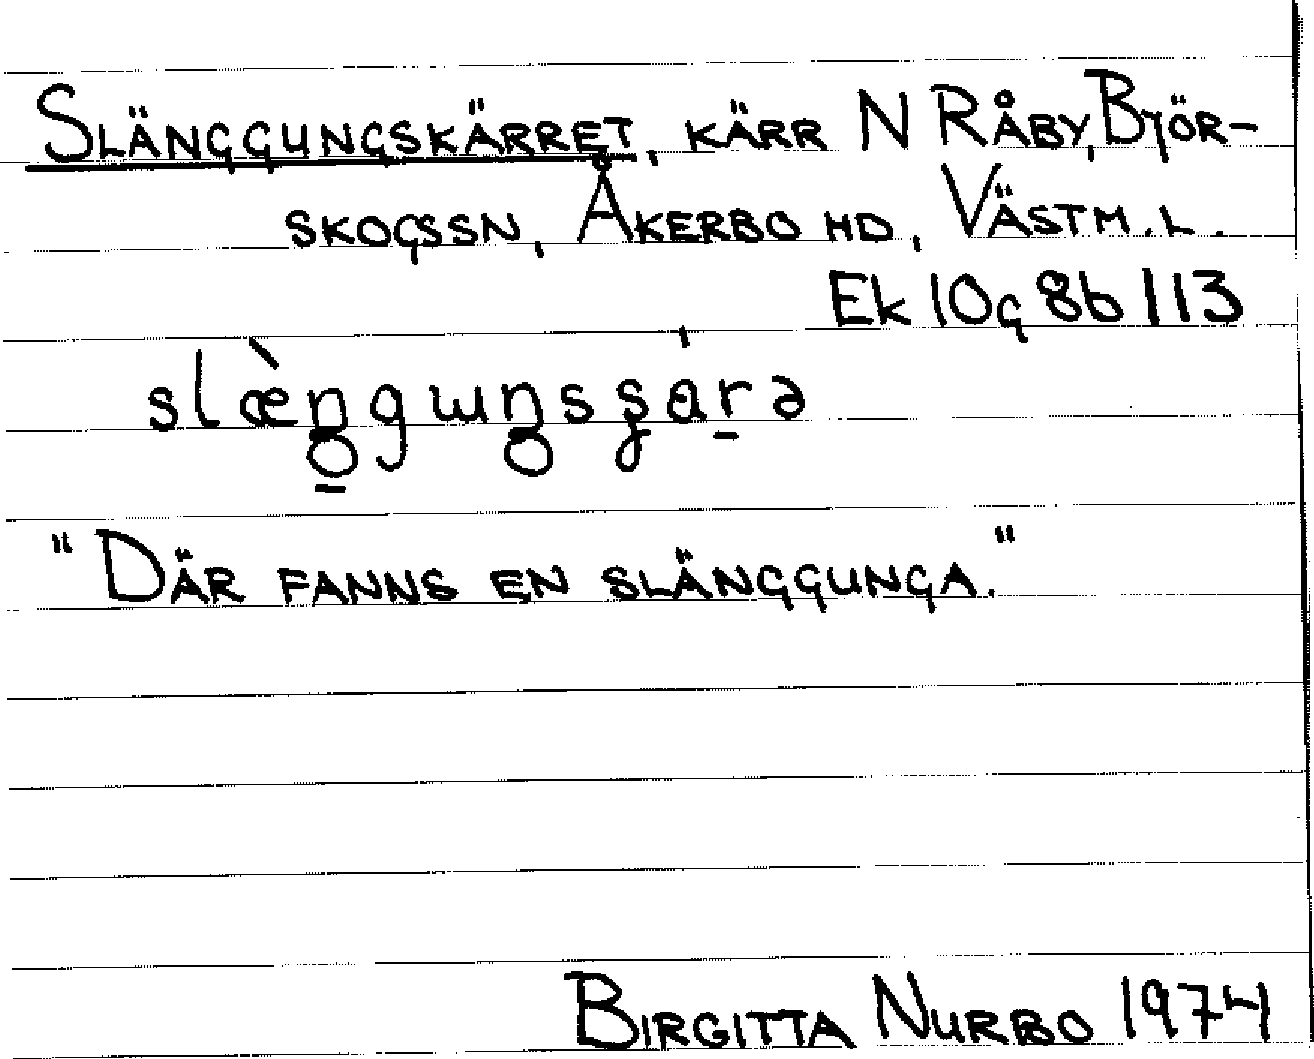 SLÄNGGUNGSKÄRRET, KÄRR N RÅBY, BJÖR-
SKOGSSN, ÅKERBO HD, VÄSTM. L.
Ek 10g 8b 113
"DÄR FANNS EN SLÄNGGUNGA."
BIRGITTA NURBO 1974